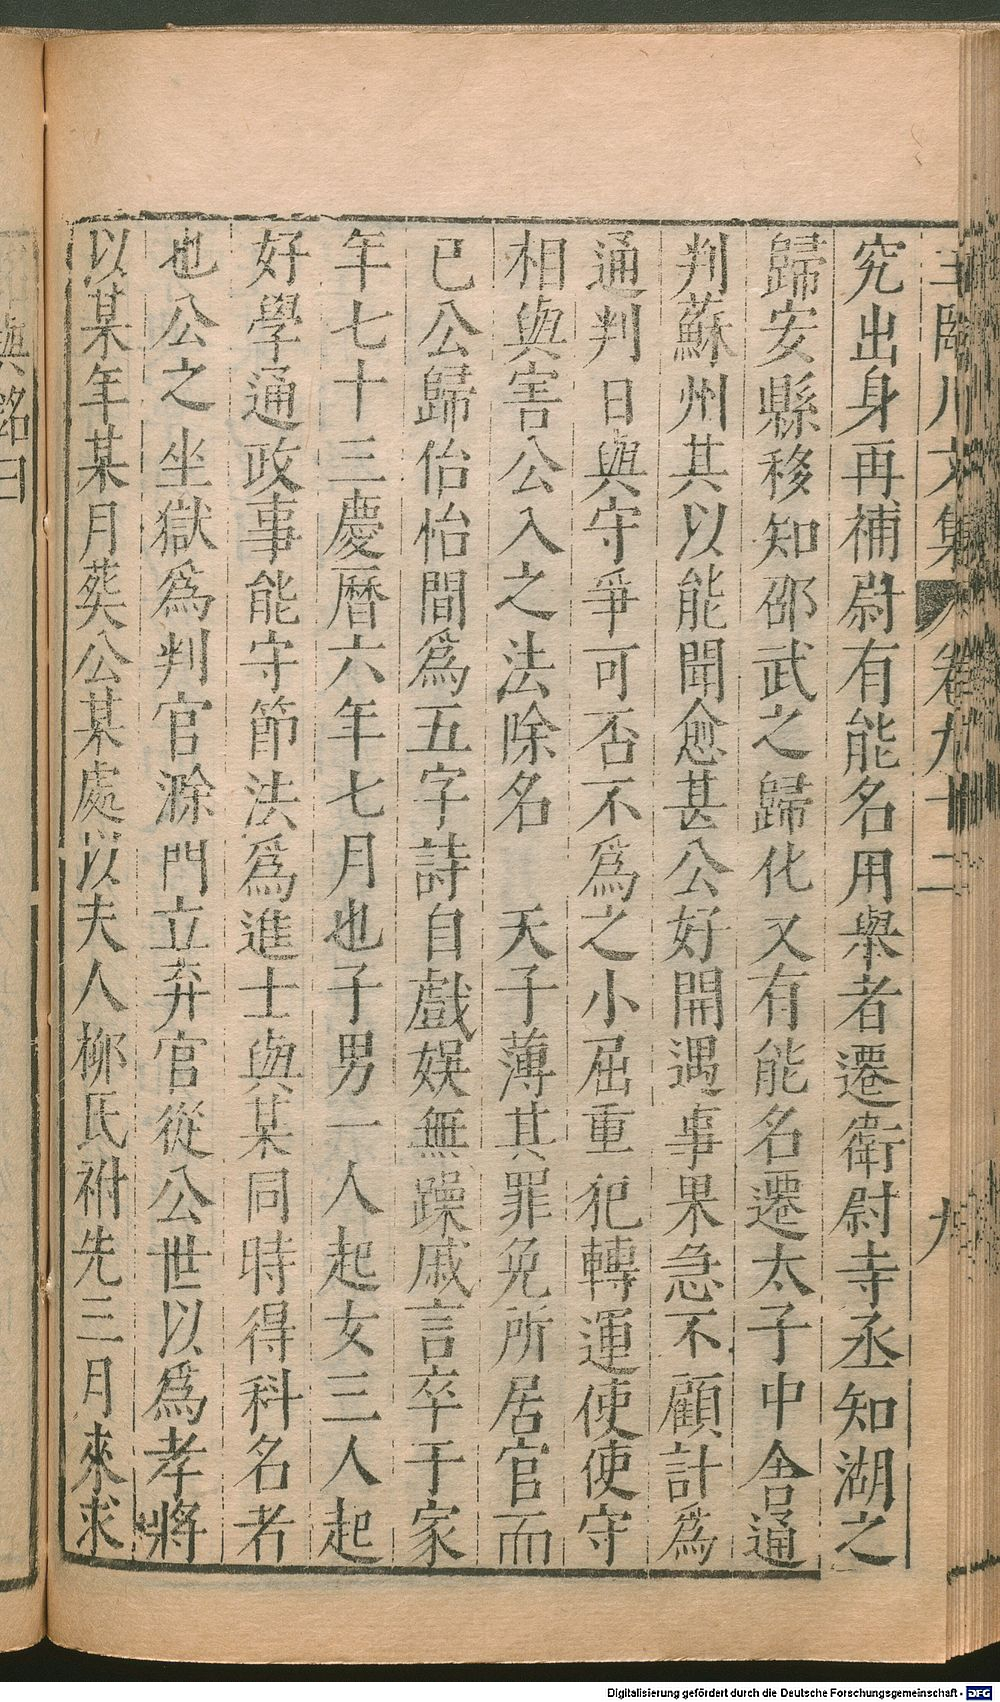 王臨川文集 卷九十二 九
究出身再補尉有能名用舉者遷衛尉寺丞知湖之
歸安縣移知邵武之歸化又有能名遷太子中舍通
判蘇州其以能聞愈甚公好開遇事果急不顧計爲
通判日與守爭可否不爲之小屈重犯轉運使使守
相與害公入之法除名 天子薄其罪免所居官而
已公歸佁怡間爲五字詩自戲娛無躁戚言卒于家
年七十三慶曆六年七月也子男一人起女三人起
好學通政事能守節法爲進士與某同時得科名者
也公之坐獄爲判官滁門立弃官從公世以爲孝將
以某年某月葬公某處以夫人柳氏祔先三月來求
與銘曰
Digitalisierung gefördert durch die Deutsche Forschungsgemeinschaft - DFG